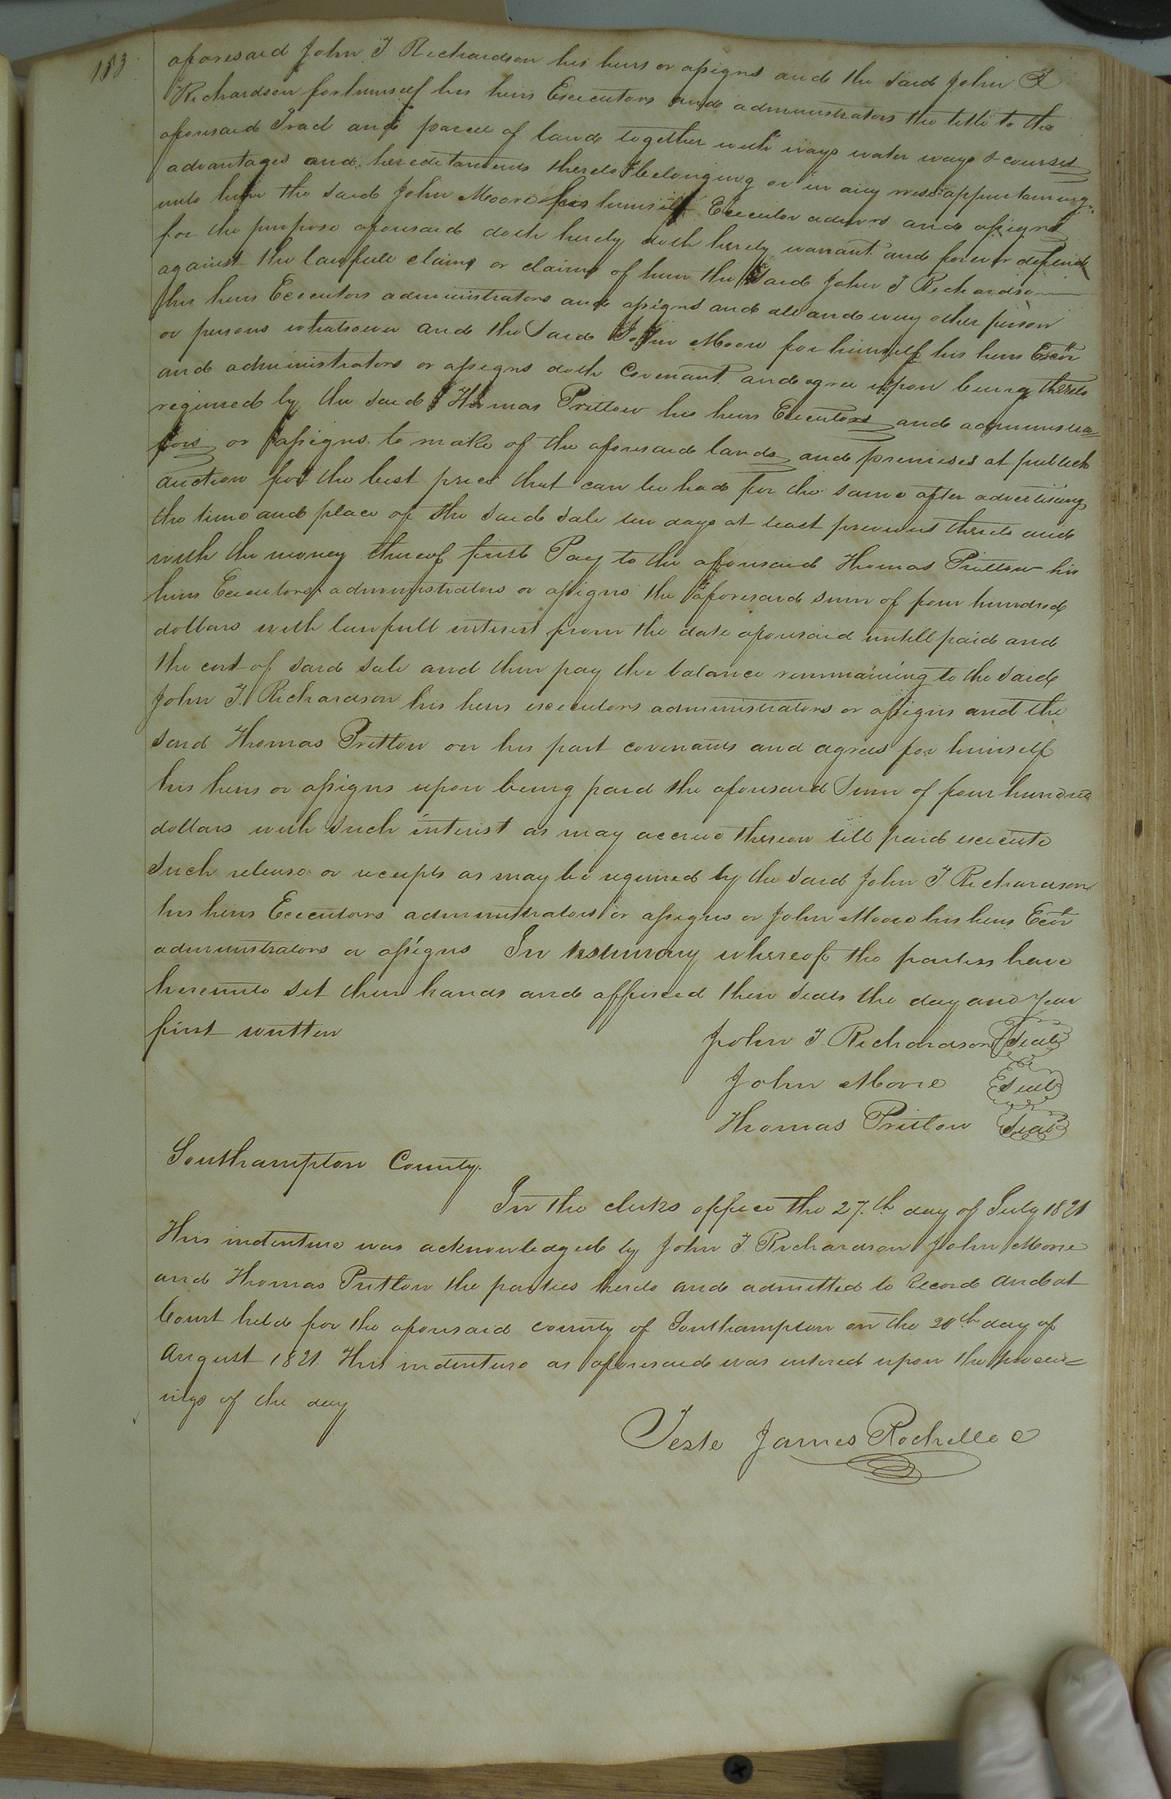 183
aforesaid John T Richardson his heirs or assigns and the said John T
Richardson for himself his heirs Executors and administrators the title to the
aforesaid Tract and parcel of land together with ways water ways & courses
advantages and hereditaments thereto belonging or in any wise appertaining
unto him the said John Moore his himself Executor admrs and assigns
for the purpose aforesaid doth hereby doth hereby warrant and forever defend
against the lawfull claims or claims of him the said John T Richardson
his heirs Executors administrators and assigns and all and every other person
or persons whatsoever and the said John Moore for himself his heirs Exors
and administrators or assigns doth Covenant and agree upon being thereto
required by the said Thomas Pretlow his heirs Executors and administra=
tors or assigns to make of the aforesaid lands and premises at publick
auction for the best price that can be had for the same after advertising
the time and place of the said sale ten days at least previous thereto and
with the money thereof first Pay to the aforesaid Thomas Pretlow his
heirs Executors administrators or assigns the aforesaid sum of four hundred
dollars with lawfull interest from the date aforesaid untill paid and
the cost of said sale and then pay the balance remmaining to the said
John T Richardson his heirs executors administrators or assigns and the
said Thomas Pretlow on his part covenants and agrees for himself
his heirs or assigns upon being paid the aforesaid sum of four hundred
dollars with such interest as may accrue thereon till paid execute
such release or receipts as may be required by the said John T Richardson
his heirs Executors administrators or assigns or John Moore his heirs Exors
administrators or assigns In testimony whereof the parties have
hereunto set their hands and affixed their seals the day and year
first written
John T Richardson Seal
John Moore Seal
Thomas Pretlow Seal
Southampton County.
In the clerks office the 27.th day of July 1821
This indenture was acknowledged by John T Richardson John Moore
and Thomas Pretlow the parties hereto and admitted to Record and at
Court held for the aforesaid county of Southampton on the 20th day of
August 1821 This indenture as aforesaid was entered upon the proceed=
ings of the day
Teste James Rochelle C